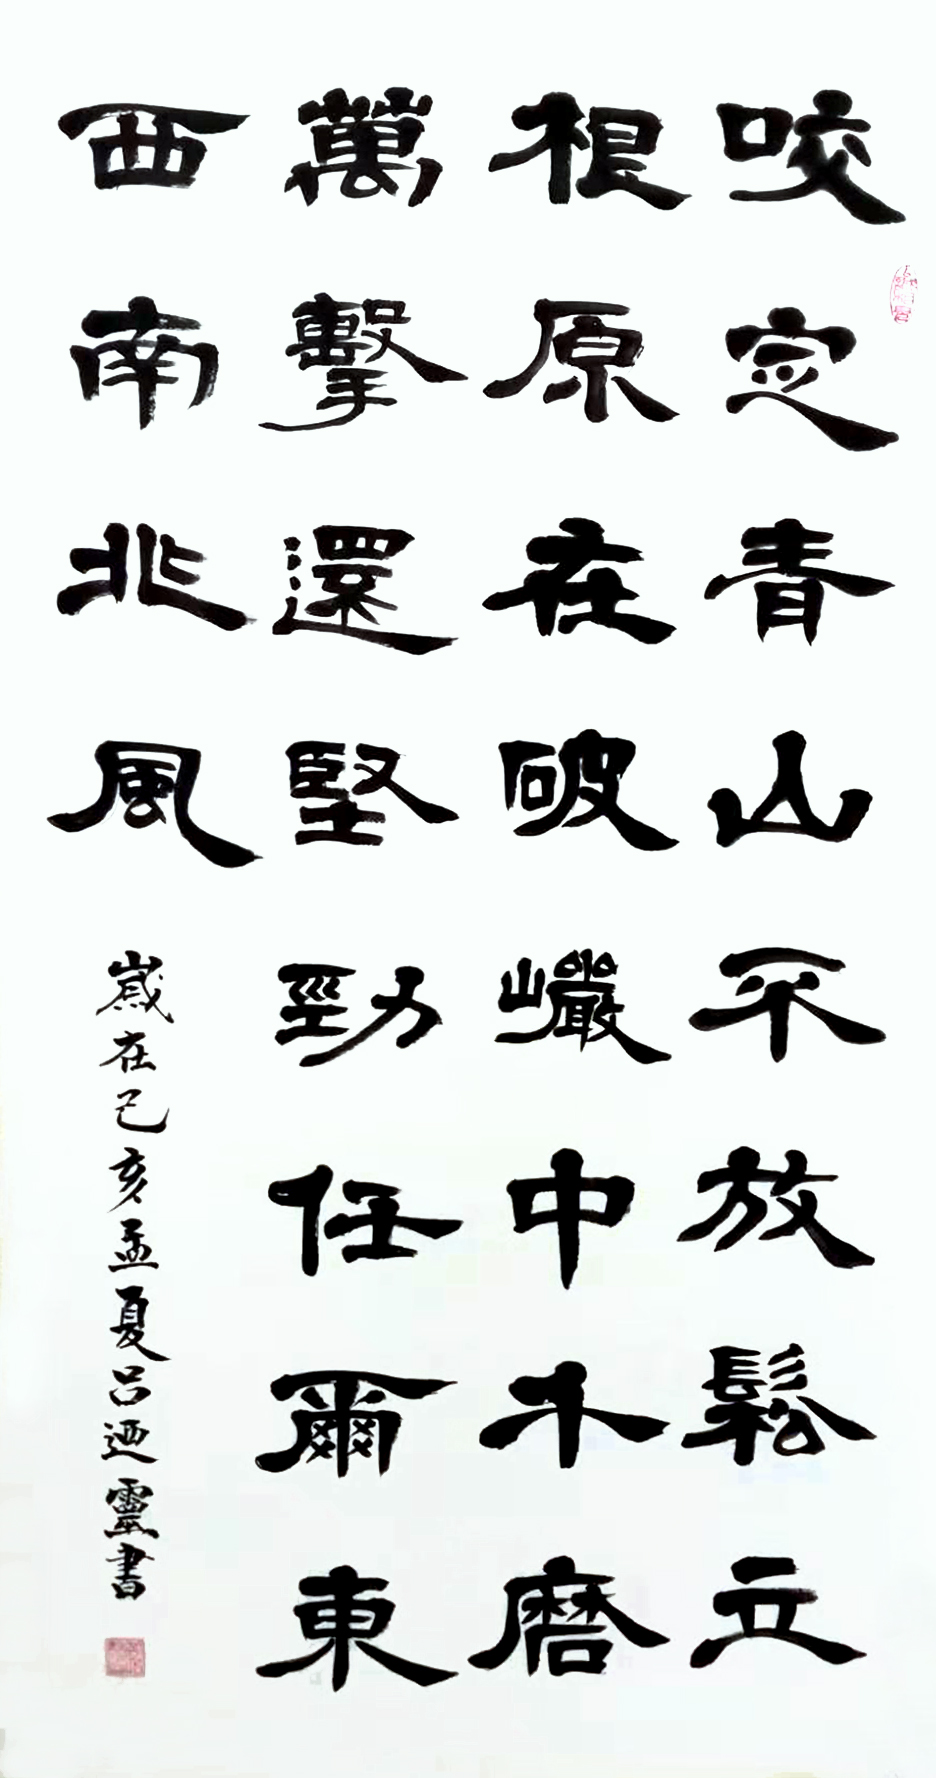 咬定青山不放鬆立
根原在破巗中千磨
萬擊還堅勁任爾東
西南北風
歲在己亥孟夏呂迺靈書